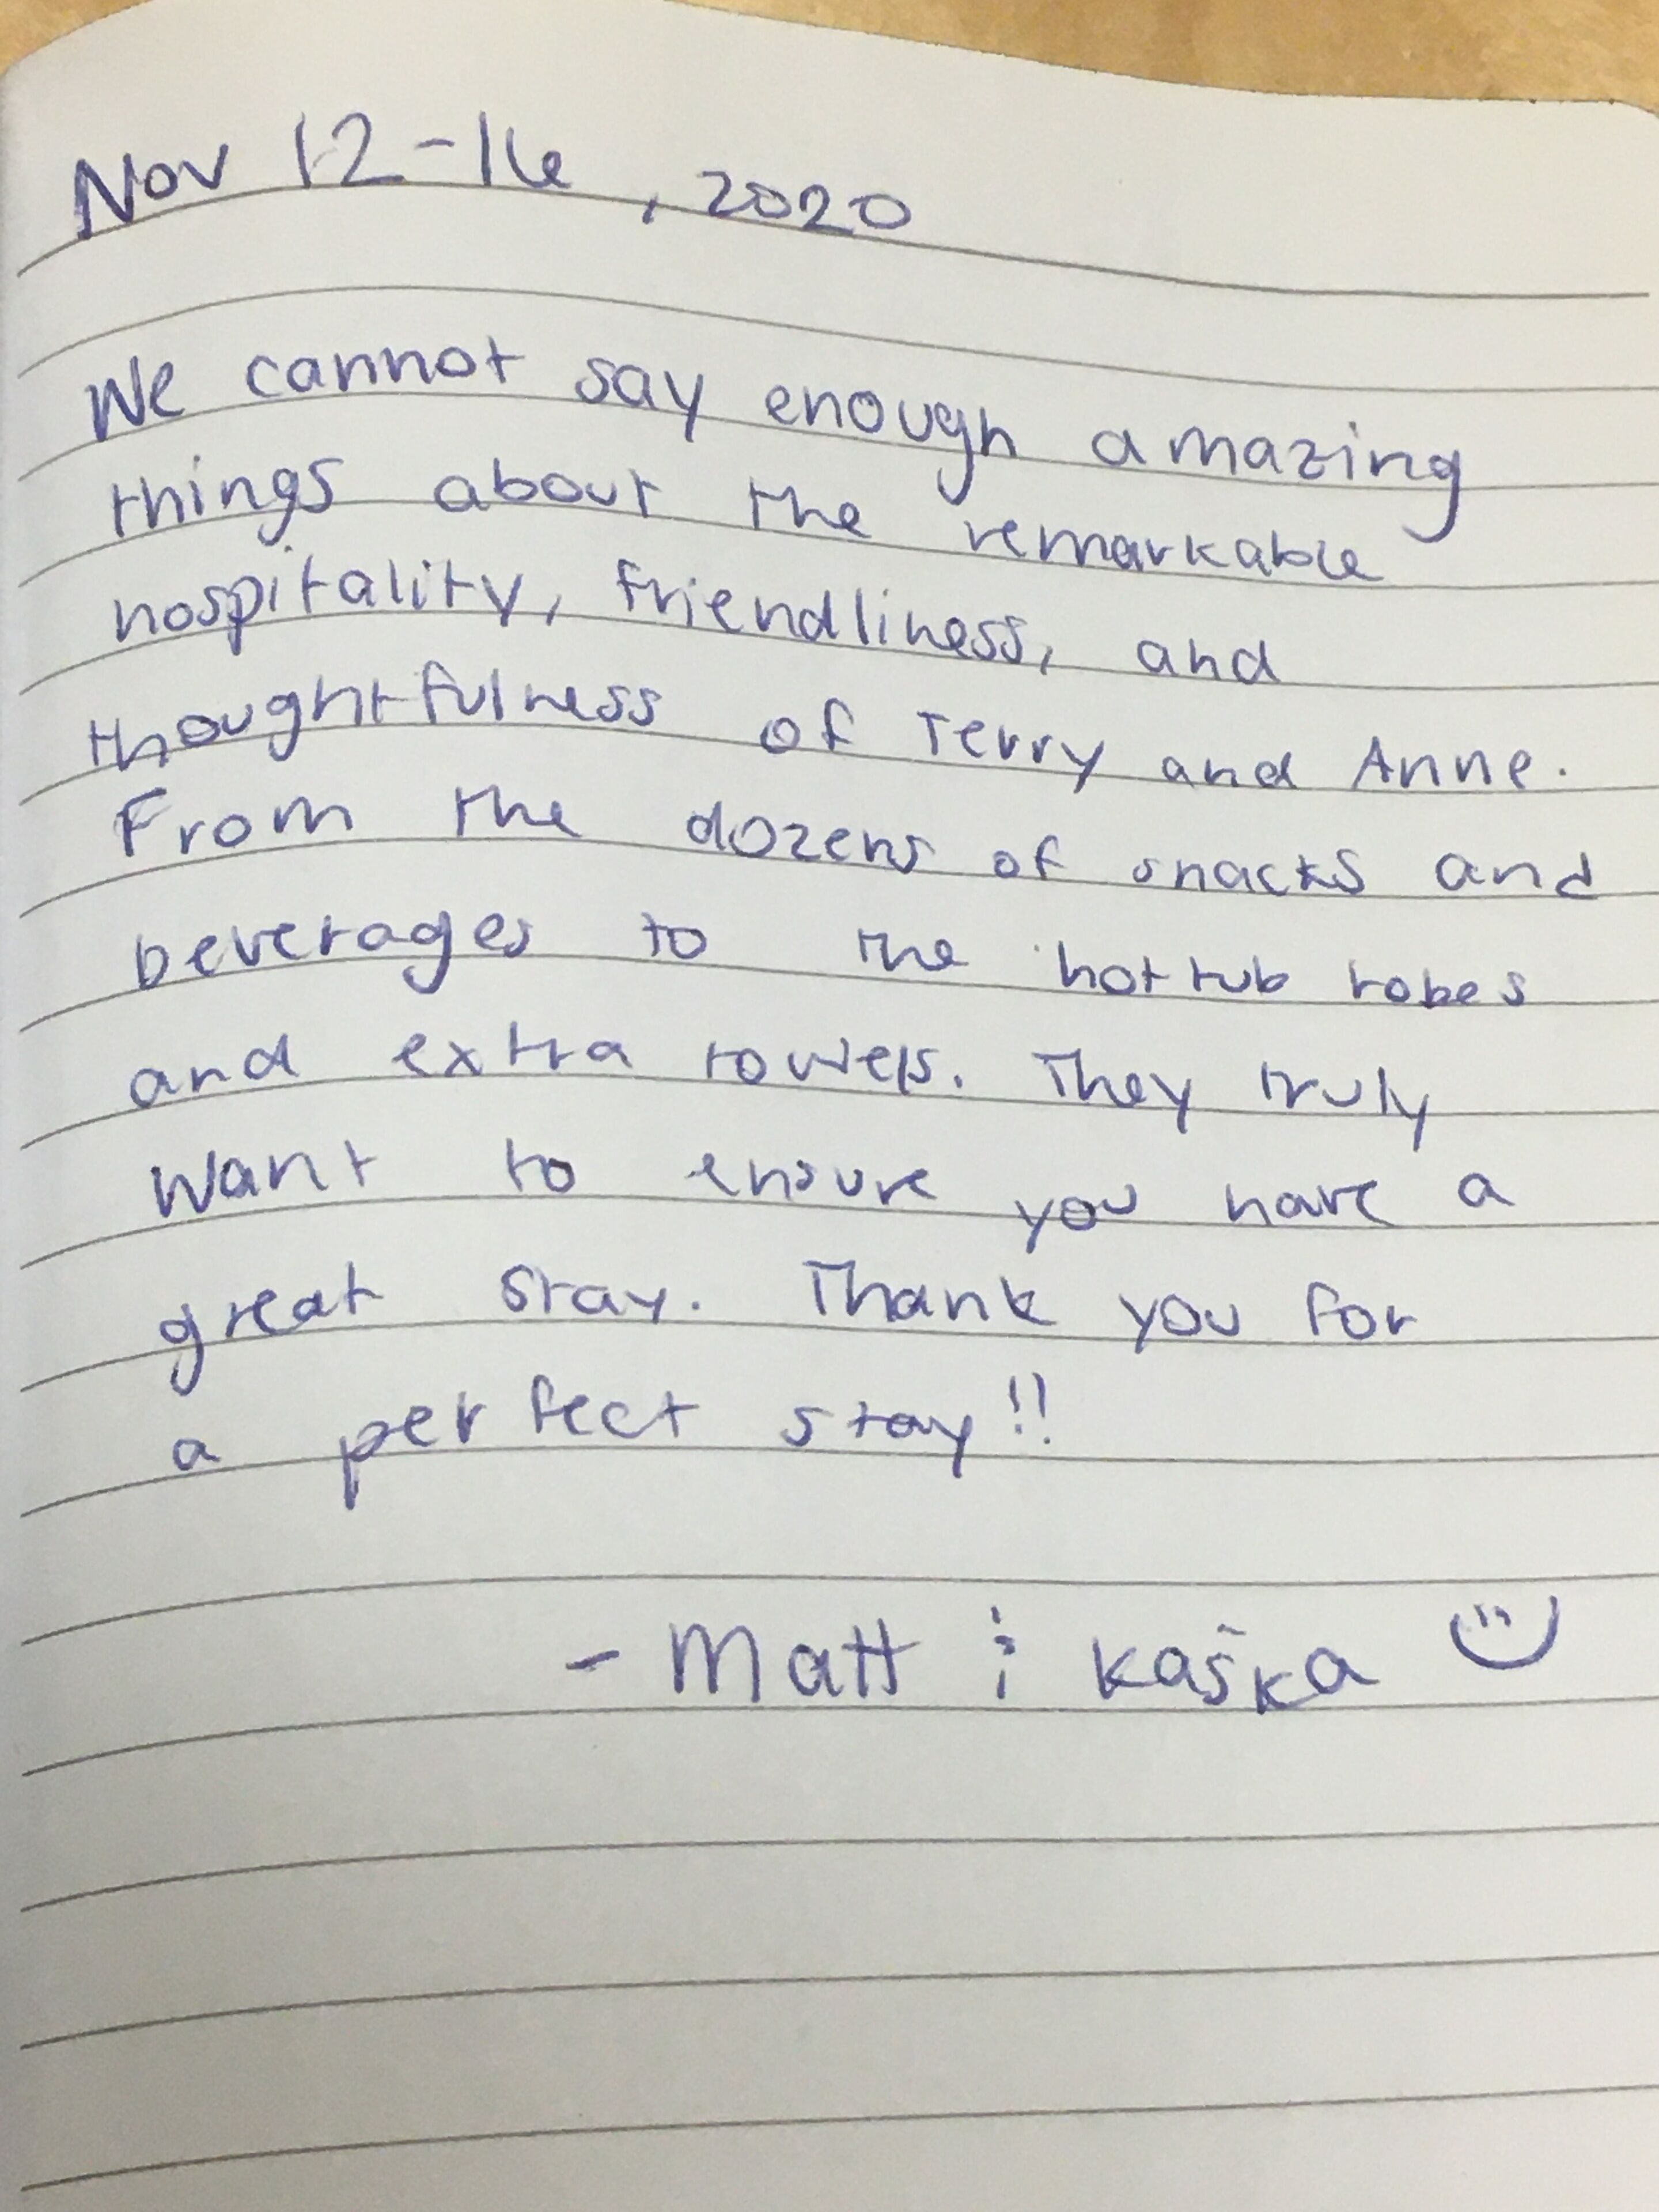 Nov 12-16, 2020
We cannot say enough amazing
things about the remarkable
hospitality, friendliness, and
thoughtfulness of Terry and Anne.
From the dozens of snacks and
beverages to the hot tub robes
and extra towels. They truly
want to ensure you have a
great stay. Thank you for
a perfect stay!!
- Matt & Kaśka